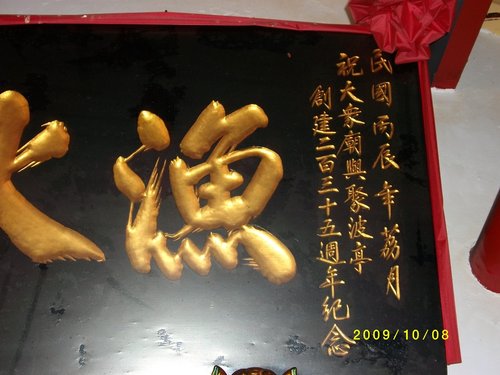 民國丙辰年荔月
祝大衆廟與聚波亭
創建二百三十五週年紀念
漁
火
2009/10/08